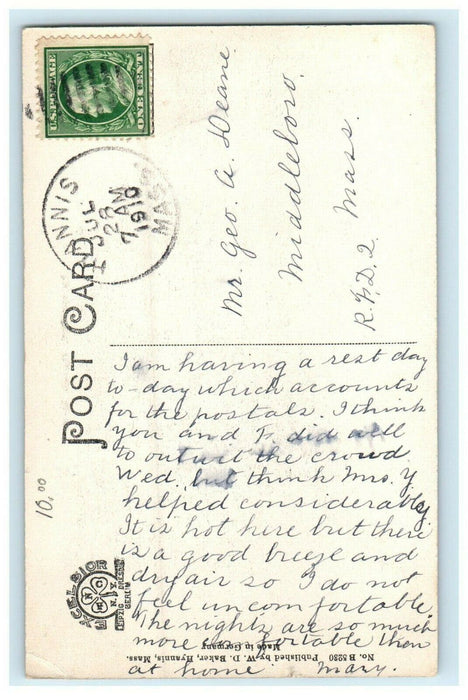 U.S. POSTAGE
ONE CENT
HYANNIS
JUL
28
7 AM
1910
MASS.
POST CARD
Mr. Geo. A. Deane
Middleboro,
R.F.D. 2 Mass.
I am having a rest day
to-day which accounts
for the postals. I think
you and F. did well
to outwit the crowd
Wed. but think Mrs. Y
helped considerably.
It is hot here but there
is a good breeze and
dry air so I do not
feel uncomfortable.
The nights are so much
more comfortable then
at home Mary.
10.00
EXCELSIOR
LEIPZIG DRESDEN
BERLIN
No. B 5230 Published by W. D. Baker, Hyannis, Mass.
Made in Germany